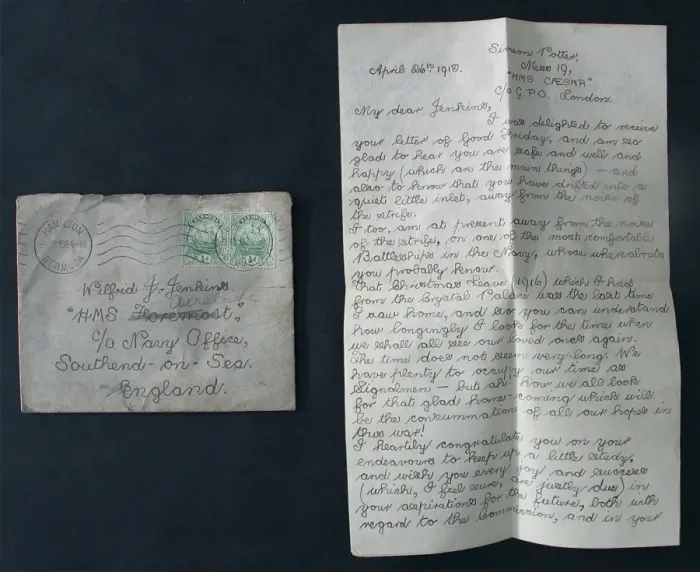 HAMILTON
BERMUDA
BERMUDA BERMUDA
Wilfrid J. Jenkins
"HMS Foremost",
c/o Navy Office,
Southend-on-Sea.
England.
Simeon Potter.
Mess 19,
"HMS CÆSAR"
c/o G.P.O. London.
April 26th 1918.
My dear Jenkins,
I was delighted to receive
your letter of Good Friday, and am so
glad to hear you are safe and well and
happy (which are the main things) – and
also to know that you have drifted into a
quiet little inlet, away from the noise of
the strife.
I too, am at present away from the noise
of the strife, on one of the most comfortable
Battleships in the Navy, whose whereabouts
you probably know.
That Christmas Leave (1916) which I had
from the Crystal Palace was the last time
I saw home, and so you can understand
how longingly I look for the time when
we shall all see our loved ones again.
The time does not seem very long. We
have plenty to occupy our time as
Signalmen – but ah! how we all look
for that glad home-coming which will
be the consummation of all our hopes in
this war!
I heartily congratulate you on your
endeavours to keep up a little study,
and wish you every joy and success
(which, I feel sure, are justly due) in
your aspirations for the future, both with
regard to the Commission, and in your